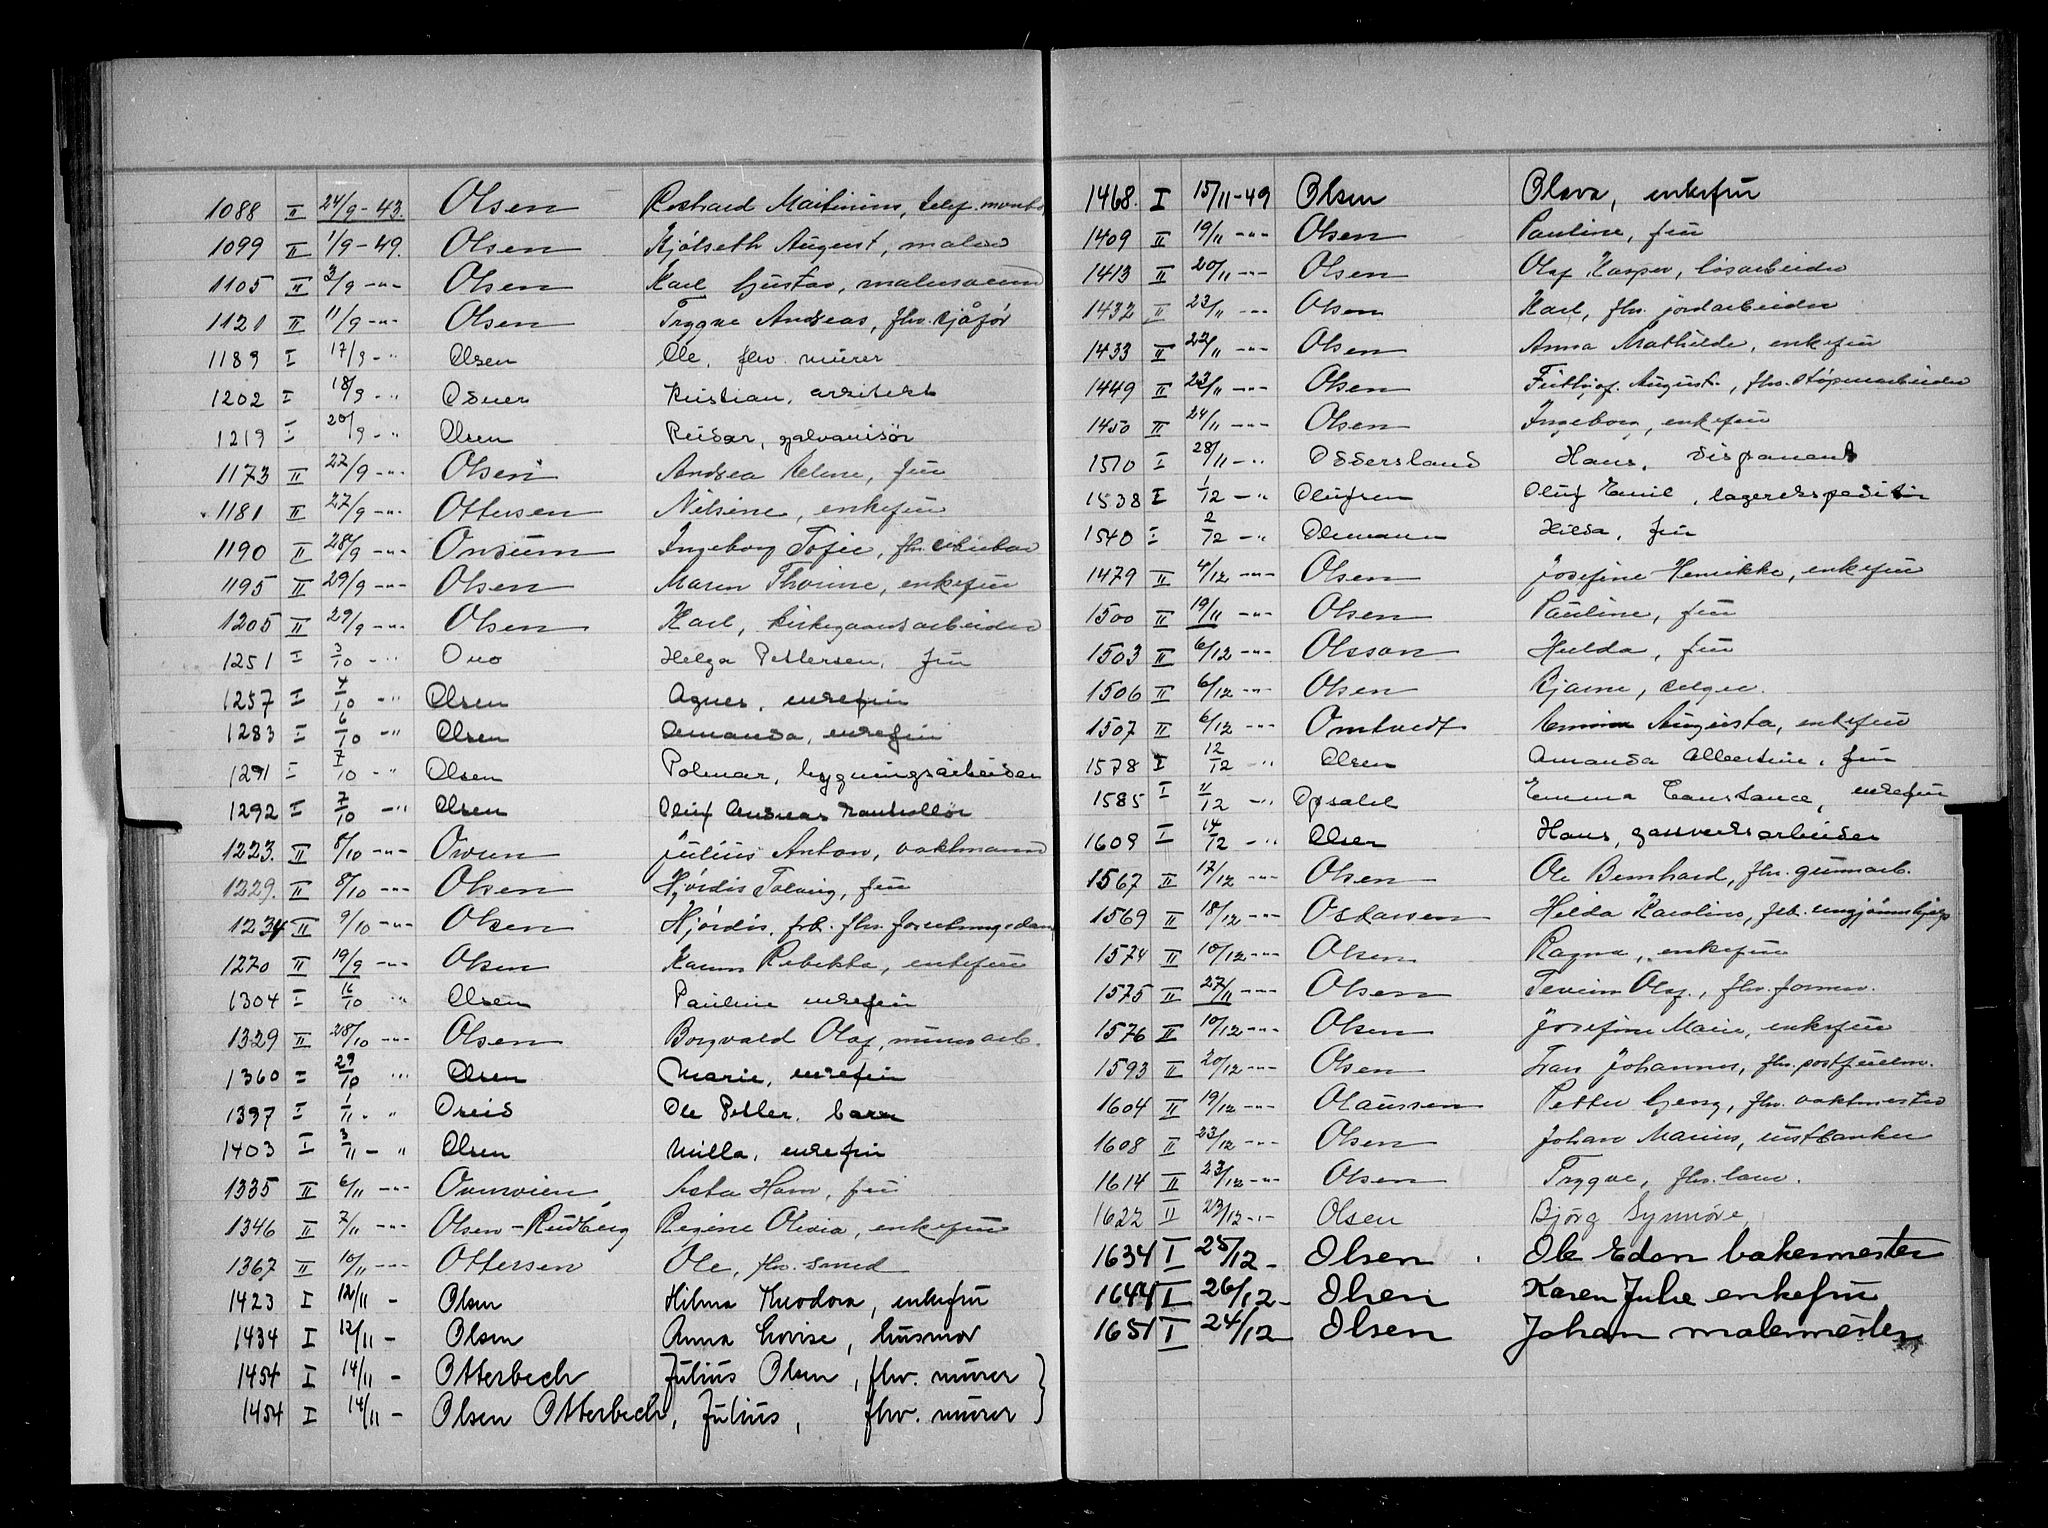 1088 II 24/9-43. Olsen Richard Martinius, telef.
1099 II 1/9-49. Olsen Kjølseth August, maler
1105 II 3/9 -"- Olsen Karl Gustav,
1121 II 11/9 -"- Olsen Trygve Andreas, fhv. sjåfør
1189 I 17/9 -" Olsen Ole, fhv. murer
1202 I 18/9 -" Kristian, arkitekt
1219 I 20/9 -" Olsen Reidar, galvanisør
1173 II 22/9 -"- Olsen Andrea Helene, fru
1181 II 27/9 -"- Ottersen Nilsine, enkefru
1190 II 28/9 -"- Onsum Ingeborg Sofie, fhv.
1195 II 29/9 -"- Olsen Maren Thorine, enkefru
1205 II 29/9 -"- Olsen Karl, kirkegaardsarbeider
1251 I 3/10 -" Helga Pettersen, fru
1257 I 4/10 -" Olsen Agnes, enkefru
1283 I 6/10 -" Olsen Amanda, enkefru
1291 I 7/10 -" Olsen Polmar, bygningsarbeider
1292 I 7/10 -" Olsen Oluf Andreas kontrollør
1223. II 8/10 -"- Julius Anton, vaktmann
1229. II 8/10 -"- Olsen Hjørdis Solveig, fru
1234 II 9/10 -"- Olsen Hjørdis, frk. fhv.
1270 II 19/9 -"- Olsen Karen Rebekka, enkefru
1304 I 16/10 " Olsen Pauline enkefru
1329 II 28/10 -"- Olsen Borgvald Olaf, murarb.
1360 I 29/10 " Olsen Marie, enkefru
1397 I 1/11. " Ole Petter, barn
1403 I 3/11 - " Olsen Milla, enkefru
1335 II 6/11 -"- Asta fru
1346 II 7/11 -"- Olsen-Rudberg Regine Olivia, enkefru
1367 II 10/11 -"- Ottersen Ole, fhv. smed
1423 I 12/11 - Olsen Hilma Theodora, enkefru
1434 I 12/11 - Olsen Anna Lovise, husmor
1454 I 14/11 - Otterbech Julius Olsen, fhv. murer
1454 I 14/11 - Olsen Otterbech, Julius, fhv. murer
1468. I 15/11-49 Olsen Olava, enkefru
1409 II 19/11 -"- Olsen Pauline, fru
1413 II 20/11 -"- Olsen Olaf Kasper, løsarbeider
1432 II 23/11 -"- Olsen Karl, fhv. jordarbeider
1433 II 22/11 -"- Olsen Anna Mathilde, enkefru
1449 II 23/11 -"- Olsen Frithjof August, fhv. støperiarbeider
1450 II 24/11 -"- Olsen Ingeborg, enkefru
1510 I 28/11 -" Oddersland Hans, disponent
1538 I 1/12 -" Olufsen Oluf Emil, lagerekspeditør
1540 I 2/12 -" Hilda, fru
1479 II 4/12 -"- Olsen Josefine Henrikke, enkefru
1500 II 19/11 -"- Olsen Pauline, fru
1503 II 6/12 -"- Olsson Hulda, fru
1506 II 6/12 -"- Olsen Bjarne, selger.
1507 II 6/12 -"- Omtvedt Augusta, enkefru
1578 I 12/12 -" Olsen Amanda Albertine, fru
1585 I 11/12 -" Opsahl Emma Constance, enkefru
1609 I 14/12 -" Olsen Hans, gassverksarbeider
1567 II 17/12 -"- Olsen Ole Bernhard, fhv. gummiarb.
1569 II 18/12 -"- Oskarsen Hilda Karoline, frk. rengjørinshjelp
1574 II 10/12 -"- Olsen Ragna, enkefru
1575 II 27/11 -"- Olsen Severin Olaf, fhv. former.
1576 II 10/12 -"- Olsen Josefine Marie, enkefru
1593 II 20/12 -"- Olsen Johannes, fhv. postfullm.
1604 II 19/12 -"- Olaussen Petter Georg, fhv. vaktmester
1608 II 23/12 -"- Olsen Johan Marius,
1614 II 23/12 -"- Olsen Trygve, fhv.
1622 II 23/12 -"- Olsen Bjørg Synnøve,
1634 I 25/12 - Olsen Ole Edon bakermester
1644 I 26/12 - Olsen Karen Julie enkefru
1651 I 24/12 Olsen Johan malermester